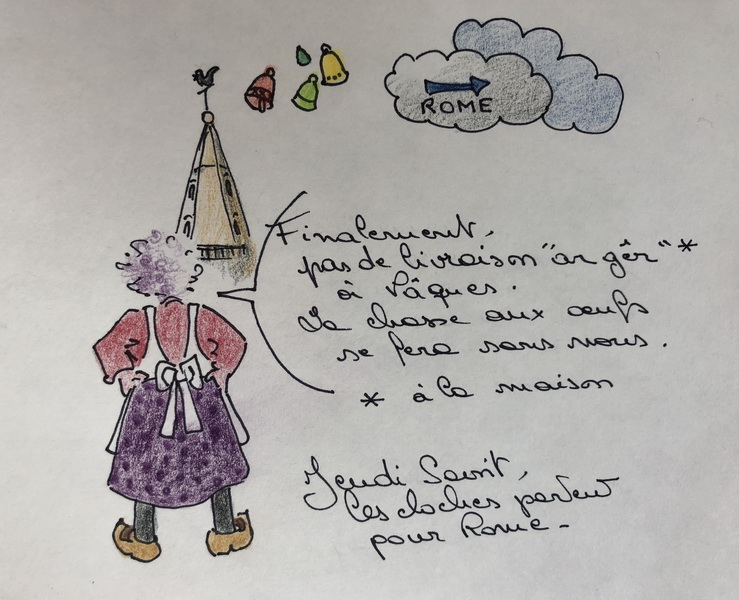 ROME
Finalement,
pas de livraison "ar gêr" *
à Pâques.
La chasse aux œufs
se fera sans nous.
* à la maison
Jeudi Saint,
les cloches partent
pour Rome -